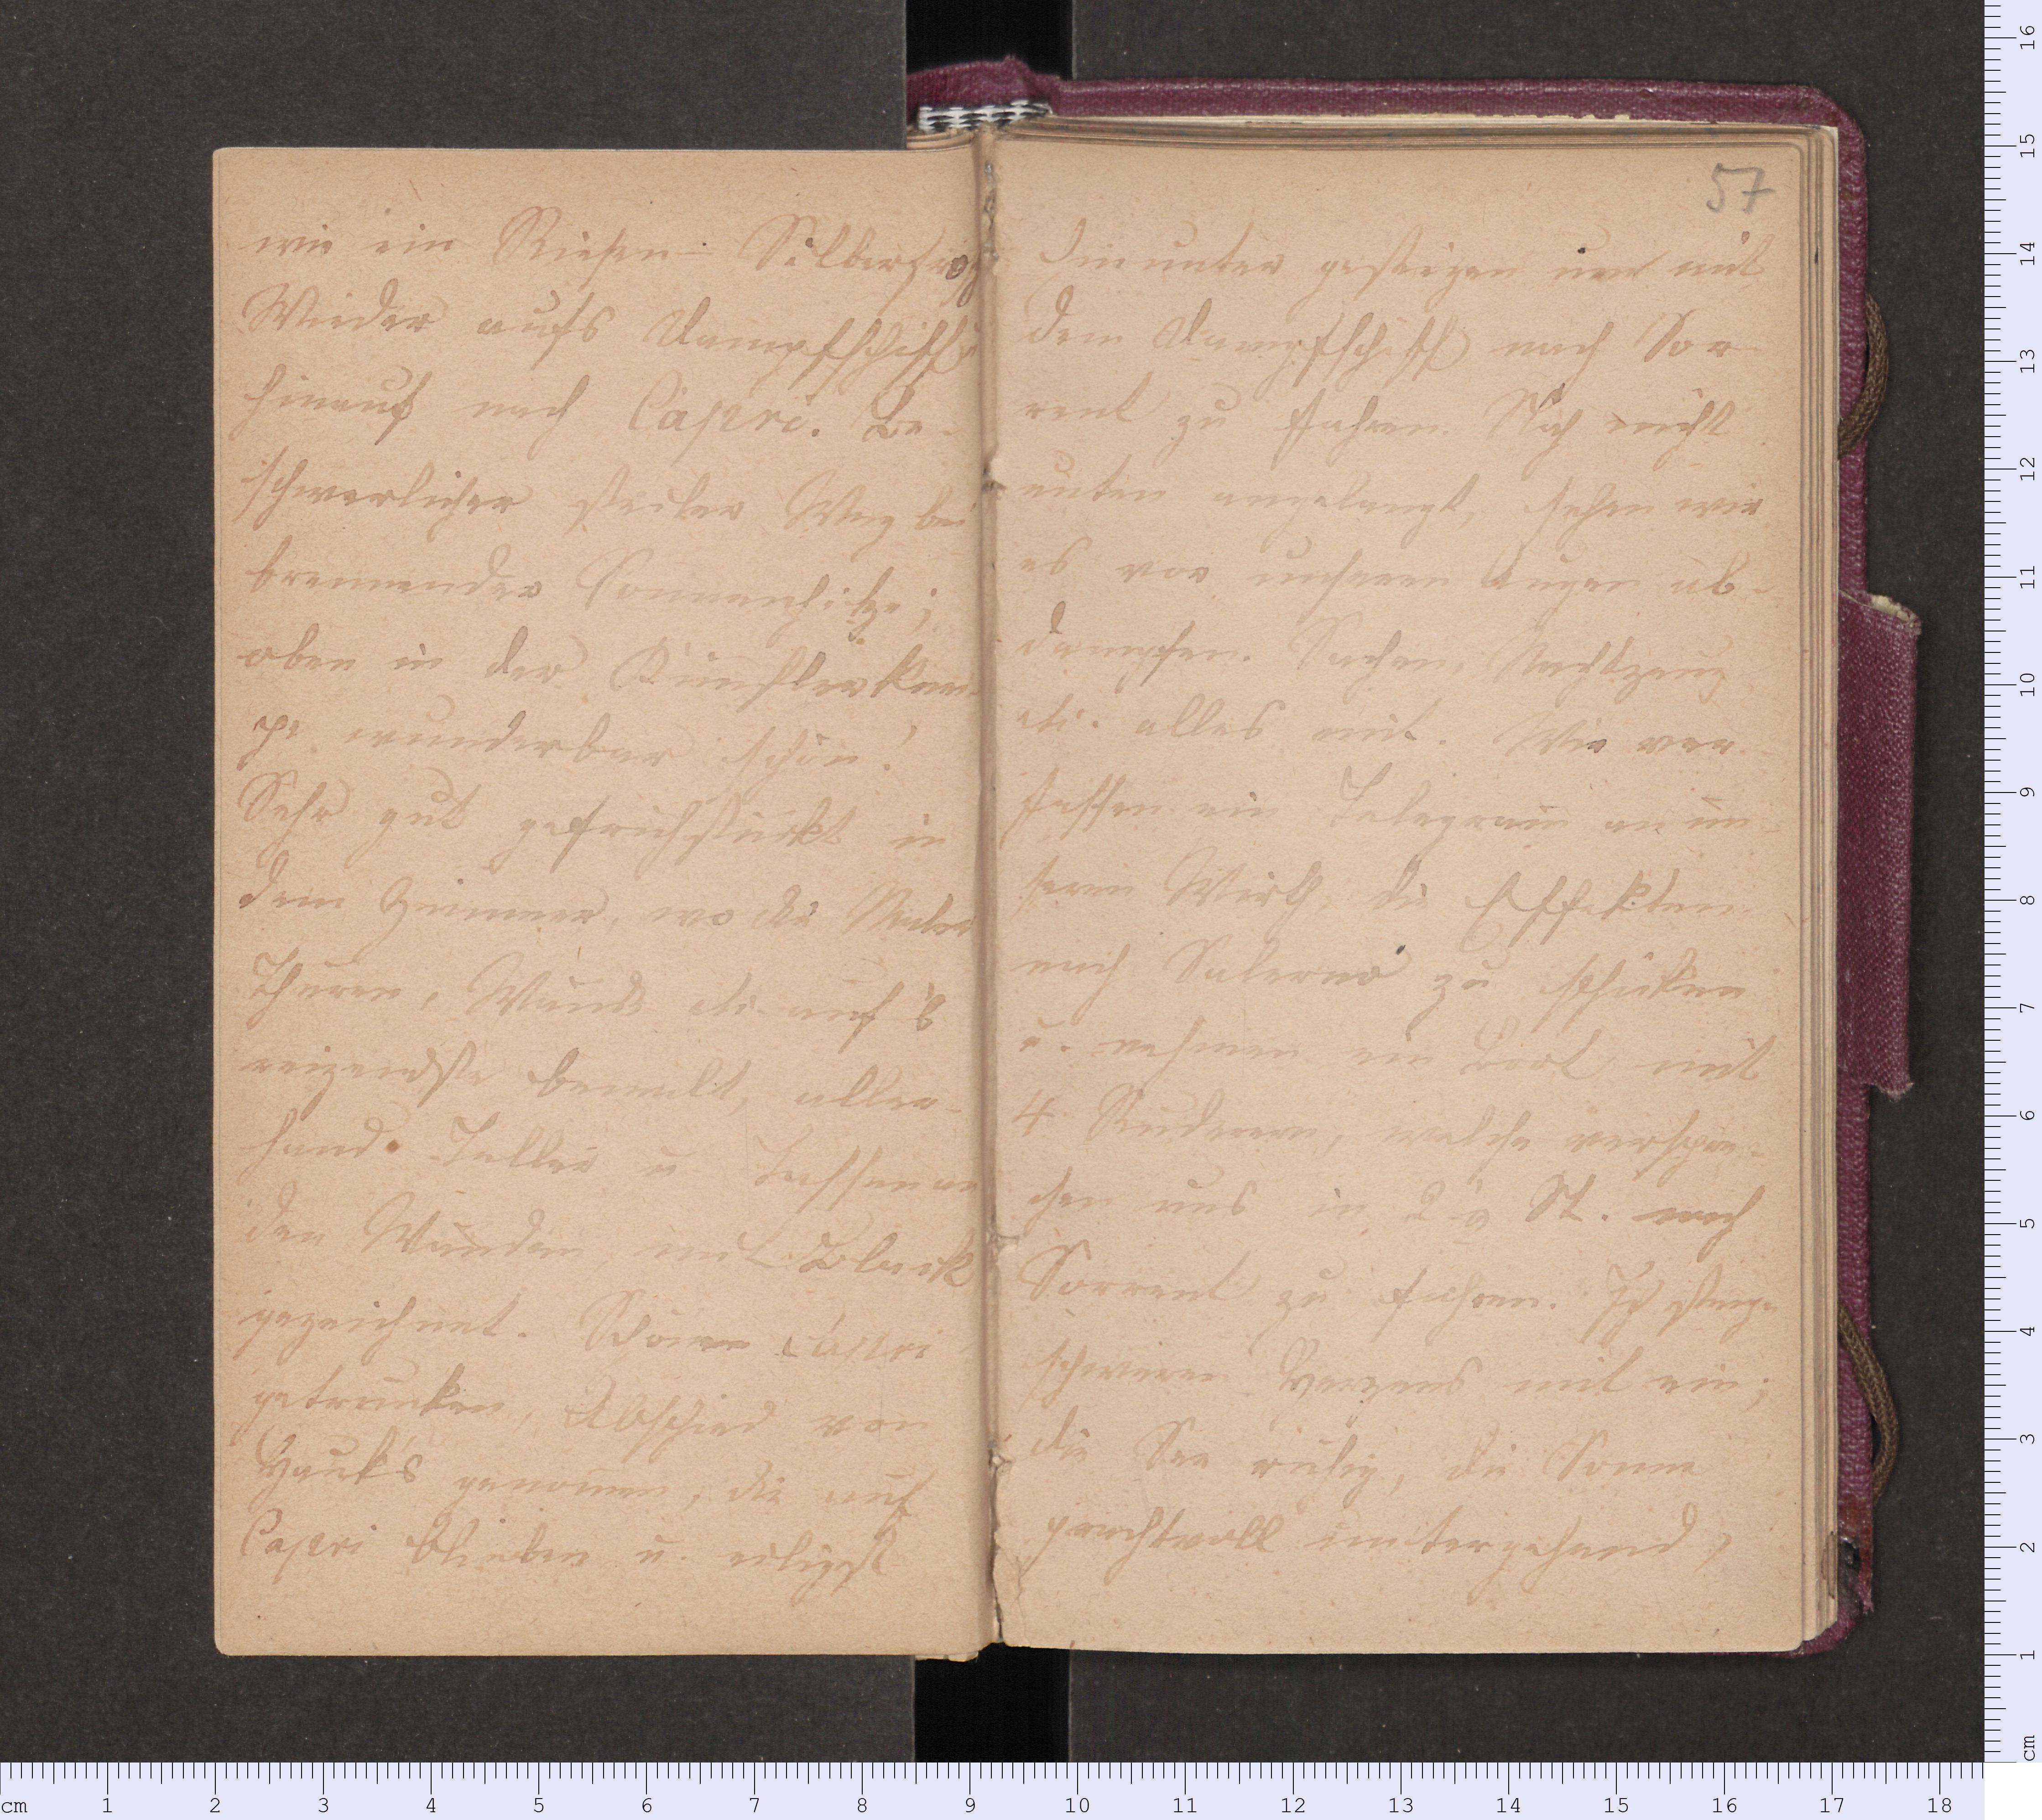 wie ein Riesen-Silberfrosch
Wieder aufs Dampfschiff u
hinauf nach Capri. Be-
schwerlicher steiler Weg bei
brennender Sonnenhitze;
oben in der Künstlerknei-
pe wunderbar schön!
Sehr gut gefrühstückt in
dem Zimmer, wo die Maler
Thüren, Wände etc. auf's
reizendste bemalt, aller-
hand Teller u Tassen an
den Wänden mit Bleistift
gezeichnet. Schönen Capri
getrunken, Abschied von
Hauk's genomen, die auf
Capri blieben u. eiligst
57
hinunter gestiegen um mit
dem Dampfschiff nach Sor-
rent zu fahren. Noch nicht
unten angelangt, sehen wir
es vor unseren Augen ab-
dampfen. Sachen, Nachtzeug
etc. alles mit. Wir ver-
fassen ein Telegram an un-
seren Wirth, die Effekten
nach Salerno zu schicken
u. nehmen ein Boot mit
4 Ruderern, welche verspre-
chen uns in 2 St. nach
Sorrent zu fahren. Ich steige
schweren Herzens mit ein;
die See ruhig, die Sonne
prachtvoll untergehend,